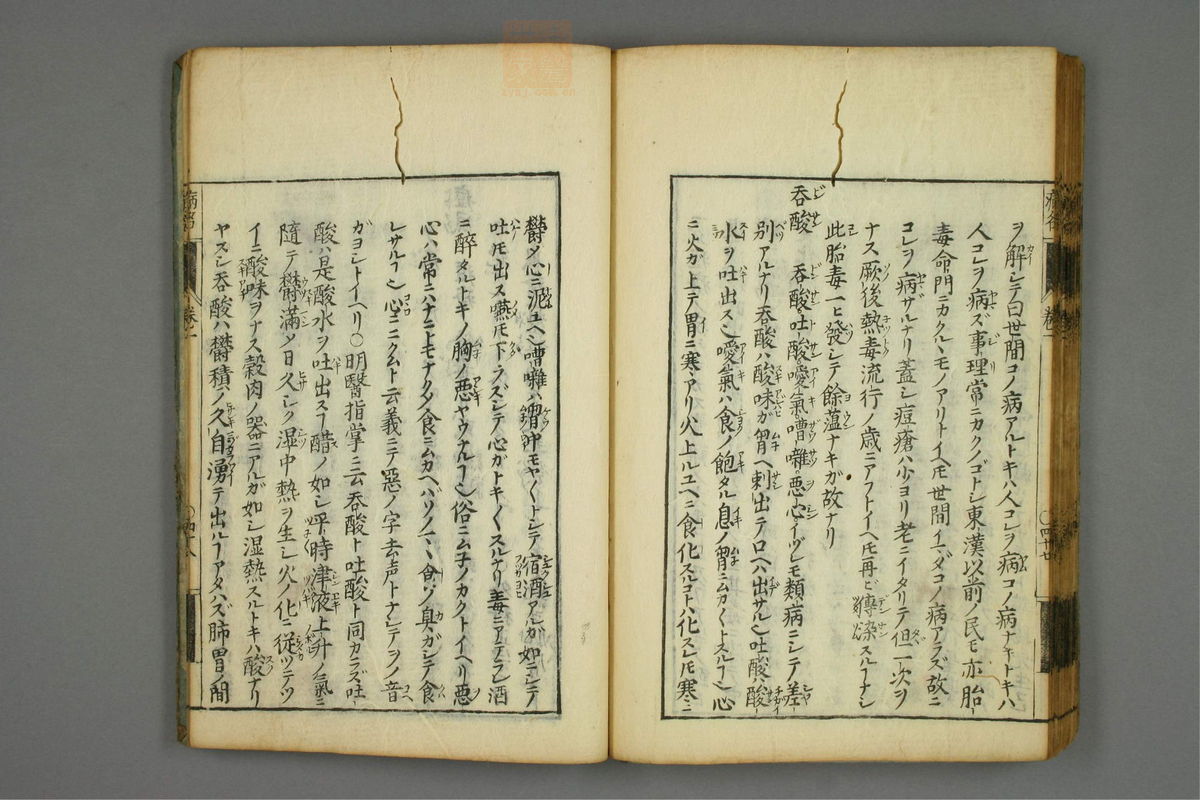 ヲ解シテ曰世間コノ病アルトキハ人コレヲ病コノ病ナキトキハ
人コレヲ病ズ事理常ニカクノゴトシ東漢以前ノ民モ亦胎
毒命門ニカクルヽモノアリトイヘモ世間イマダコノ病アラズ故ニ
コレヲ病ザルナリ蓋シ痘瘡ハ少ヨリ老ニイタリテ但一次ヲ
ナス厥後熱毒流行ノ歳ニアフトイヘモ再ビ傳染スルフナシ
此胎毒一ヒ發シテ餘薀ナキガ故ナリ
呑酸 呑酸吐酸噯氣嘈囃悪心イヅレモ類病ニシテ差
別アルナリ呑酸ハ酸味ガ胷ヘ刺出テロヘハ出サル也吐酸ハ酸
水ヲ吐出ス也噯氣ハ食ノ飽タル息ノ胷ニムカ〱トスルフ也心
ニ火ガ上テ胃ニ寒アリ火上ルユヘニ食化スルコトハ化スレモ寒ニ
欝メ心ニ泥ユヘ也嘈囃ハ溜飲モヤ〱トシテ宿酒アルガ如ニシテ
吐モ出ス嚥モ下ラズシテ心ガトキ〱スルナリ毒ニアテラレ酒
ニ醉タルトキノ胸ノ悪ヤウナルフ也俗ニム子ノカクトイヘリ悪
心ハ常ニハナニトモナクメ食ニムカヘバソノマヽ食ノ臭ガシテ食
レサルフ也心ニニクムト云義ニテ惡ノ字去声トナシテヲノ音
ガヨシトイヘリ○明醫指掌ニ云呑酸ト吐酸ト同カラズ吐
酸ハ是酸水ヲ吐出スフ醋ノ如シ平時津液上升ノ氣ニ
隨テ欝満メ日久シク湿中熱ヲ生シ火ノ化ニ從ツテツ
イニ酸味ヲナス穀肉ノ器ニアルガ如シ湿熱スルトキハ酸ナリ
ヤスシ呑酸ハ欝積メ久自湧テ出ルフアタハズ肺胃ノ間